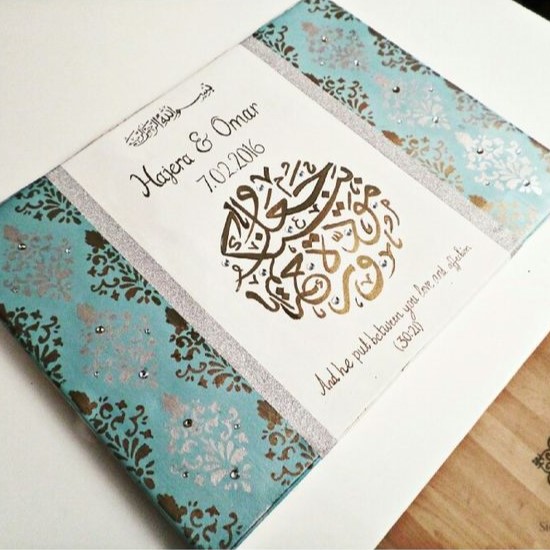 بسم الله الرحمن الرحيم
Hajera & Omar
7.02.2016
وجعل بينكم مودة ورحمة
And he put between you love and affection
(30:21)